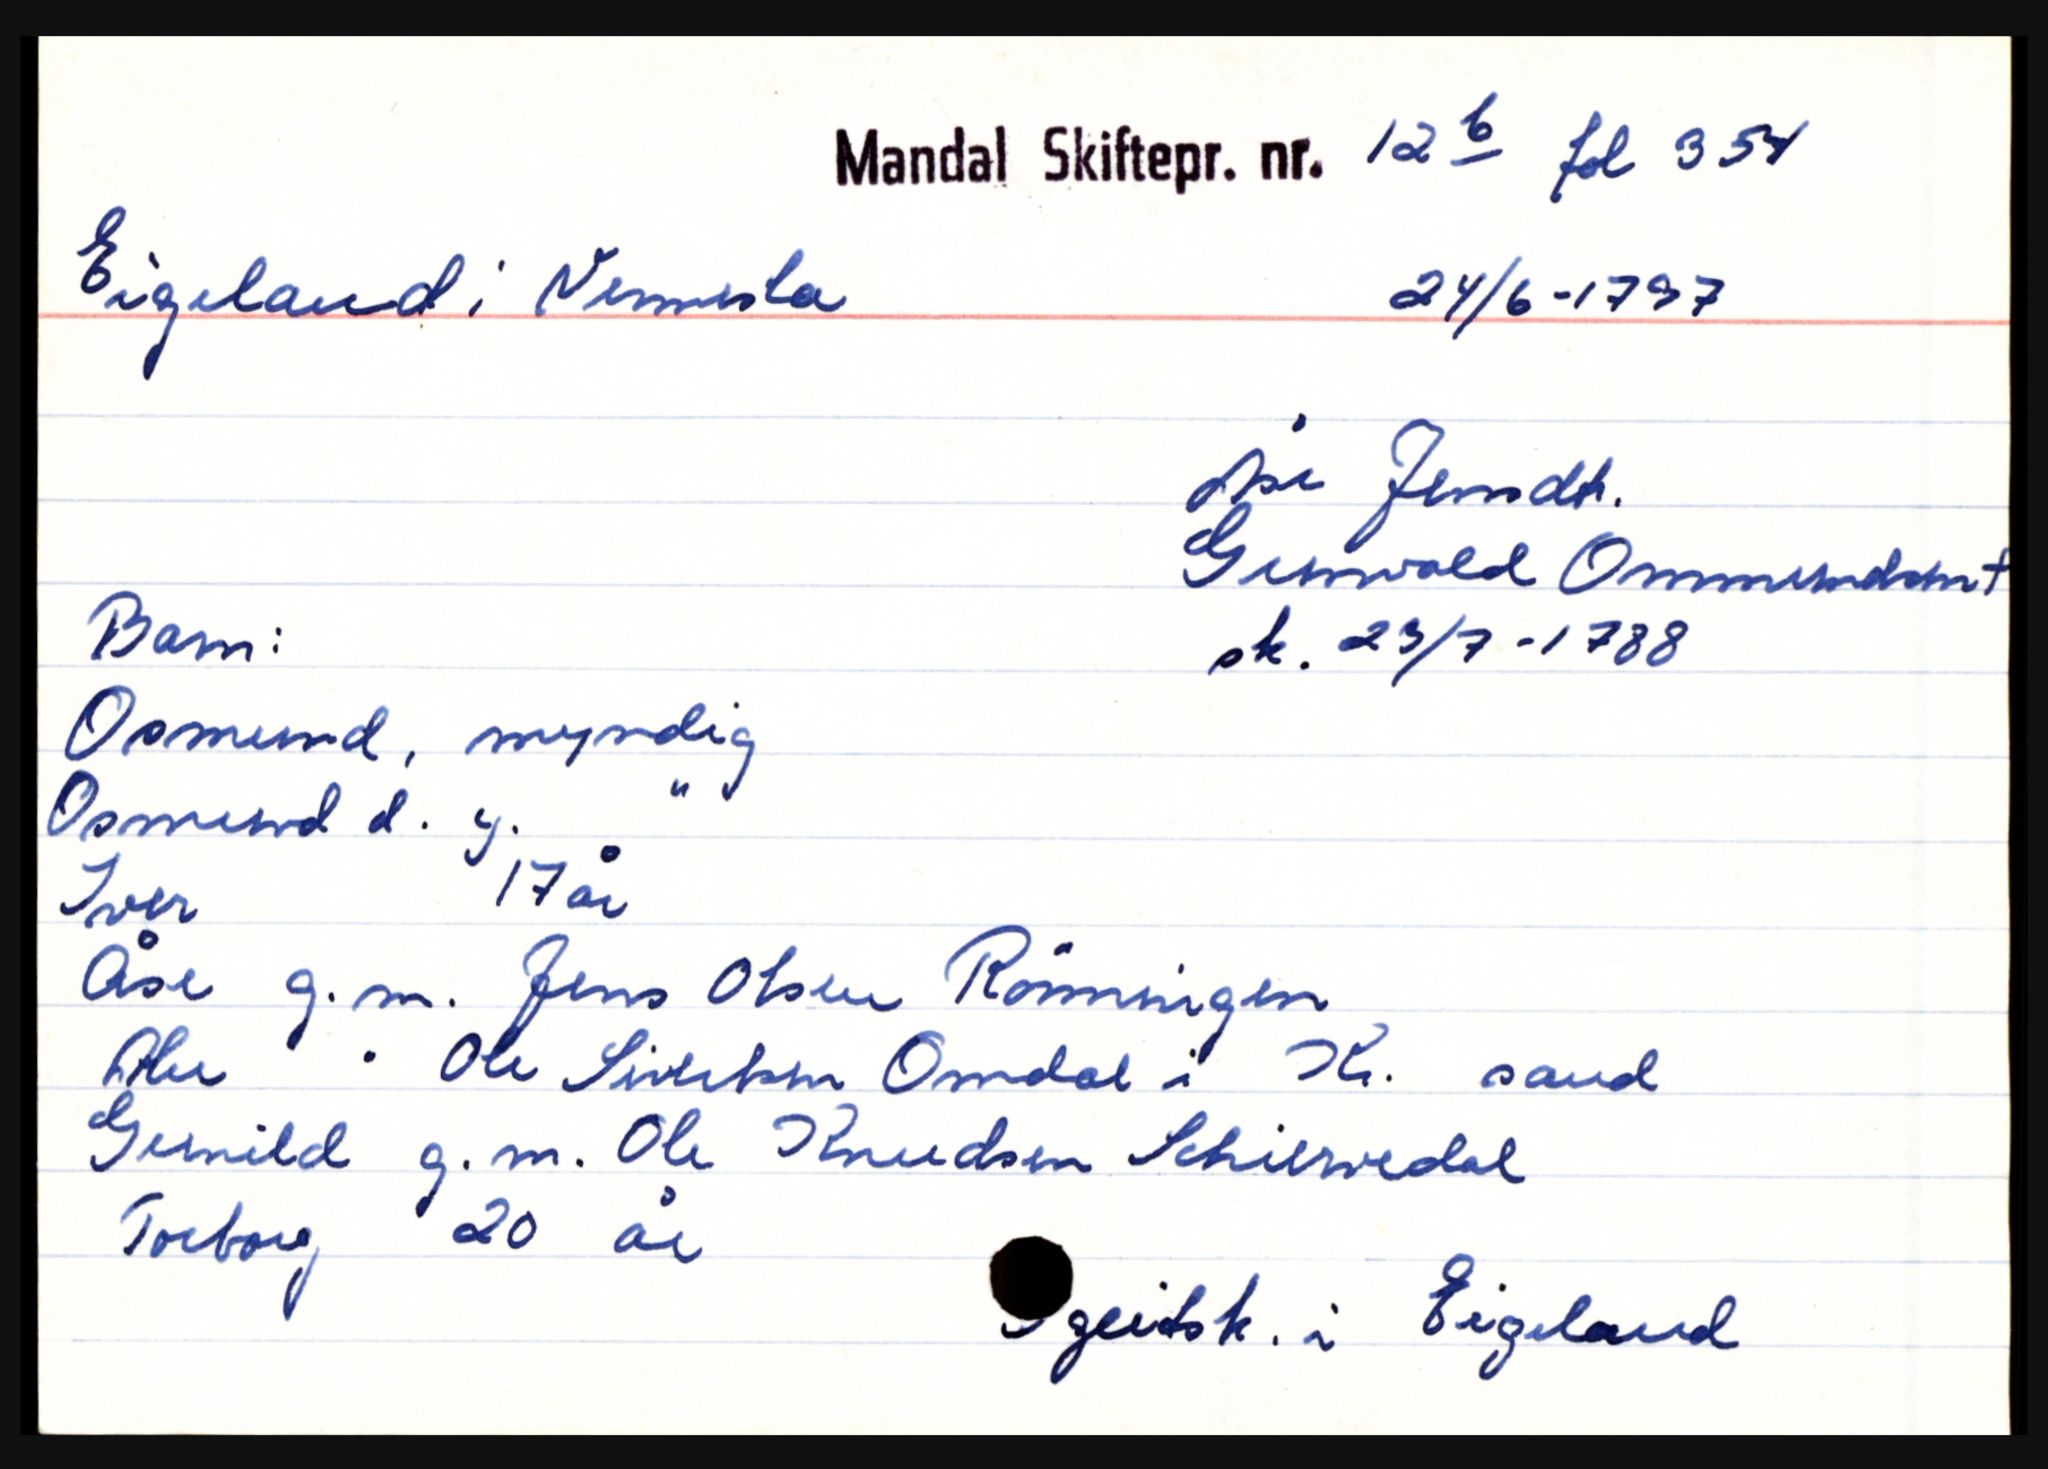 Mandal Skiftepr. nr. 12 b fol 354
Eigeland i Vennesla 24/6-1797
Åse Jensdt.
Gunvald Ommundsen +
sk. 23/7-1788
Barn:
Osmund, myndig
Osmund d. y. "
Iver 17 år
Åse g. m. Jens Olsen Rönningen
" Ole Sivertsen Omdal i Kr. sand
Gunild g. m. Ole Knudsen Schiervedal
Torborg 20 år
i Eigeland